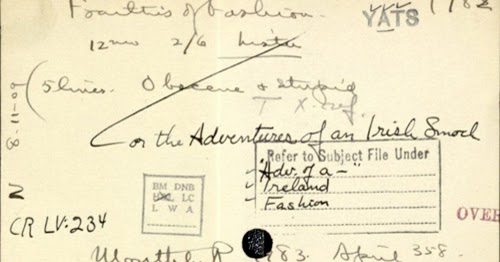 of Fashion. 1782
YATS
12mo 2/6 Lister
(5 lines. Obscene & stupid
T X-ref.
or the Adventures of an Irish Smock
Refer to Subject File Under
"Adv. of a—"
Ireland
Fashion
BM DNB
LC
L W A
8-11-00
N
CR LV:234
OVER
Monthly R 1783. April 358.